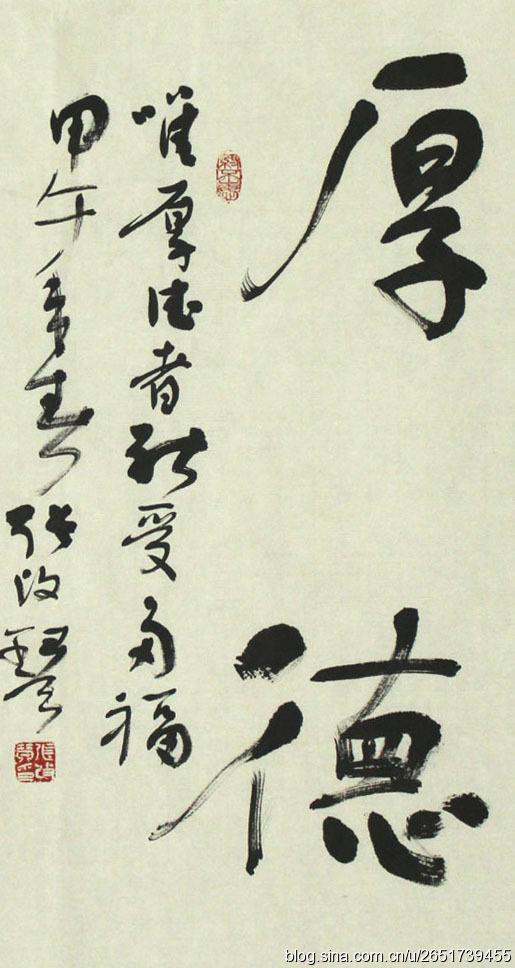 厚德
唯厚德者能受多福
甲午年春 张改琴
blog.sina.com.cn/u/2651739455